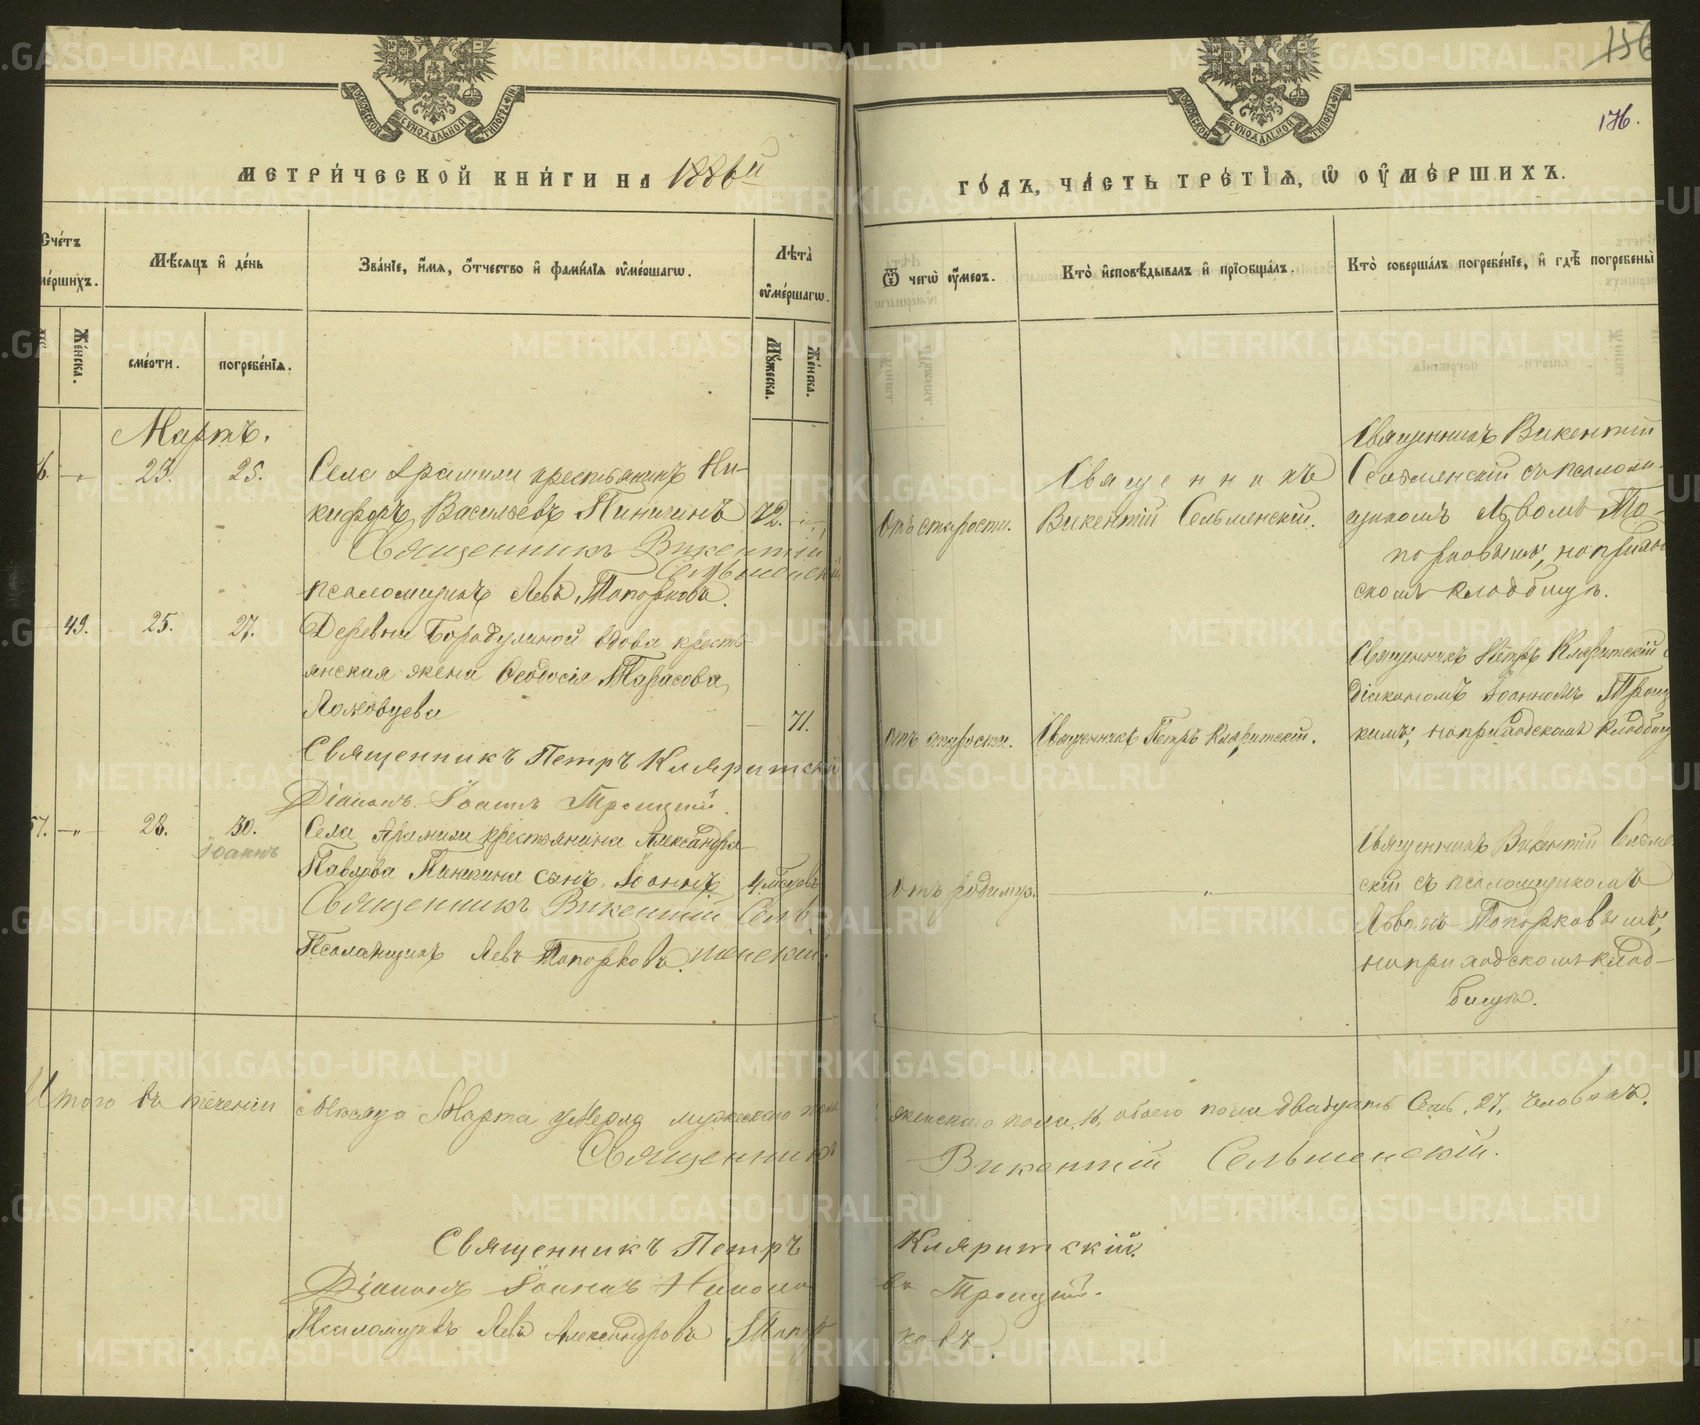 156
176.
МЕТРИ́ЧЕСКОЙ КНИ́ГИ НА 1886й
ГО́ДЪ, ЧА́СТЬ ТРЕ́ТІѦ, Ѡ ОУ҆МЕ́РШИХЪ.
Счетъ
ме́ршихъ.
Мѣ́сѧцъ и҆ де́нь
Зва́нїе, и҆́мѧ, ѻ҆́тчество и҆ фами́лїѧ оу҆ме́ршагѡ.
Лѣ̑та̀
оу҆ме́ршагѡ.
Ѿ чегѡ̀ оу҆́меръ.
Кто̀ и҆сповѣ́дывалъ и҆ прїѡбща́лъ.
Кто̀ соверша́лъ погребе́нїе, и҆ гдѣ̀ погребены̀
Же́нска.
сме́рти.
погребе́нїѧ.
Мꙋ́жеска.
Же́нска.
Мартъ.
6. –„– 23. 25. Села Арамили крестьянинъ Ни-
кифоръ Васильевъ Пиничинъ 72. –„–
Священникъ Викентій
Сельменскій
псаломщикъ Левъ Топорковъ.
Отъ старости.
Священникъ
Викентій Сельменскій.
Священникъ Викентій
Сельменскій съ псалом-
щикомъ Львомъ То-
порковымъ, на приход-
скомъ кладбищѣ.
43. 25. 27. Деревни Бородулиной вдова кресть-
янская жена Ѳеодосія Тарасова
71.
отъ старости.
Священникъ Петръ Кляритскій.
Священникъ Петръ Кляритскій с
діакономъ Іоанномъ Троиц
кимъ, на приходскомъ кладбищ
Священникъ Петръ Кляритскій
Діаконъ Іоаннъ Троицкій
57. –„– 28. 30. Села Арамили крестьянина Александра
Іоаннъ
Павлова сынъ Іоаннъ 4 мѣсяцъ
Священникъ Викентій Сель
менскій.
Псаломщикъ Левъ Топорковъ.
отъ родимца.
„
Священникъ Викентій Сельмен
скій съ псаломщикомъ
Львомъ Топорковымъ,
на приходскомъ клад-
бищѣ.
Итого въ теченіи мѣсяца Марта умерло мужескаго пола
женскаго пола 16, обоего пола двадцать семь, 27, человѣкъ.
Священникъ Викентій Сельменскій.
Священникъ Петръ Кляритскій.
Діаконъ Іоаннъ Николаевъ Троицкій.
Псаломщикъ Левъ Александровъ Топорковъ.
METRIKI.GASO-URAL.RU